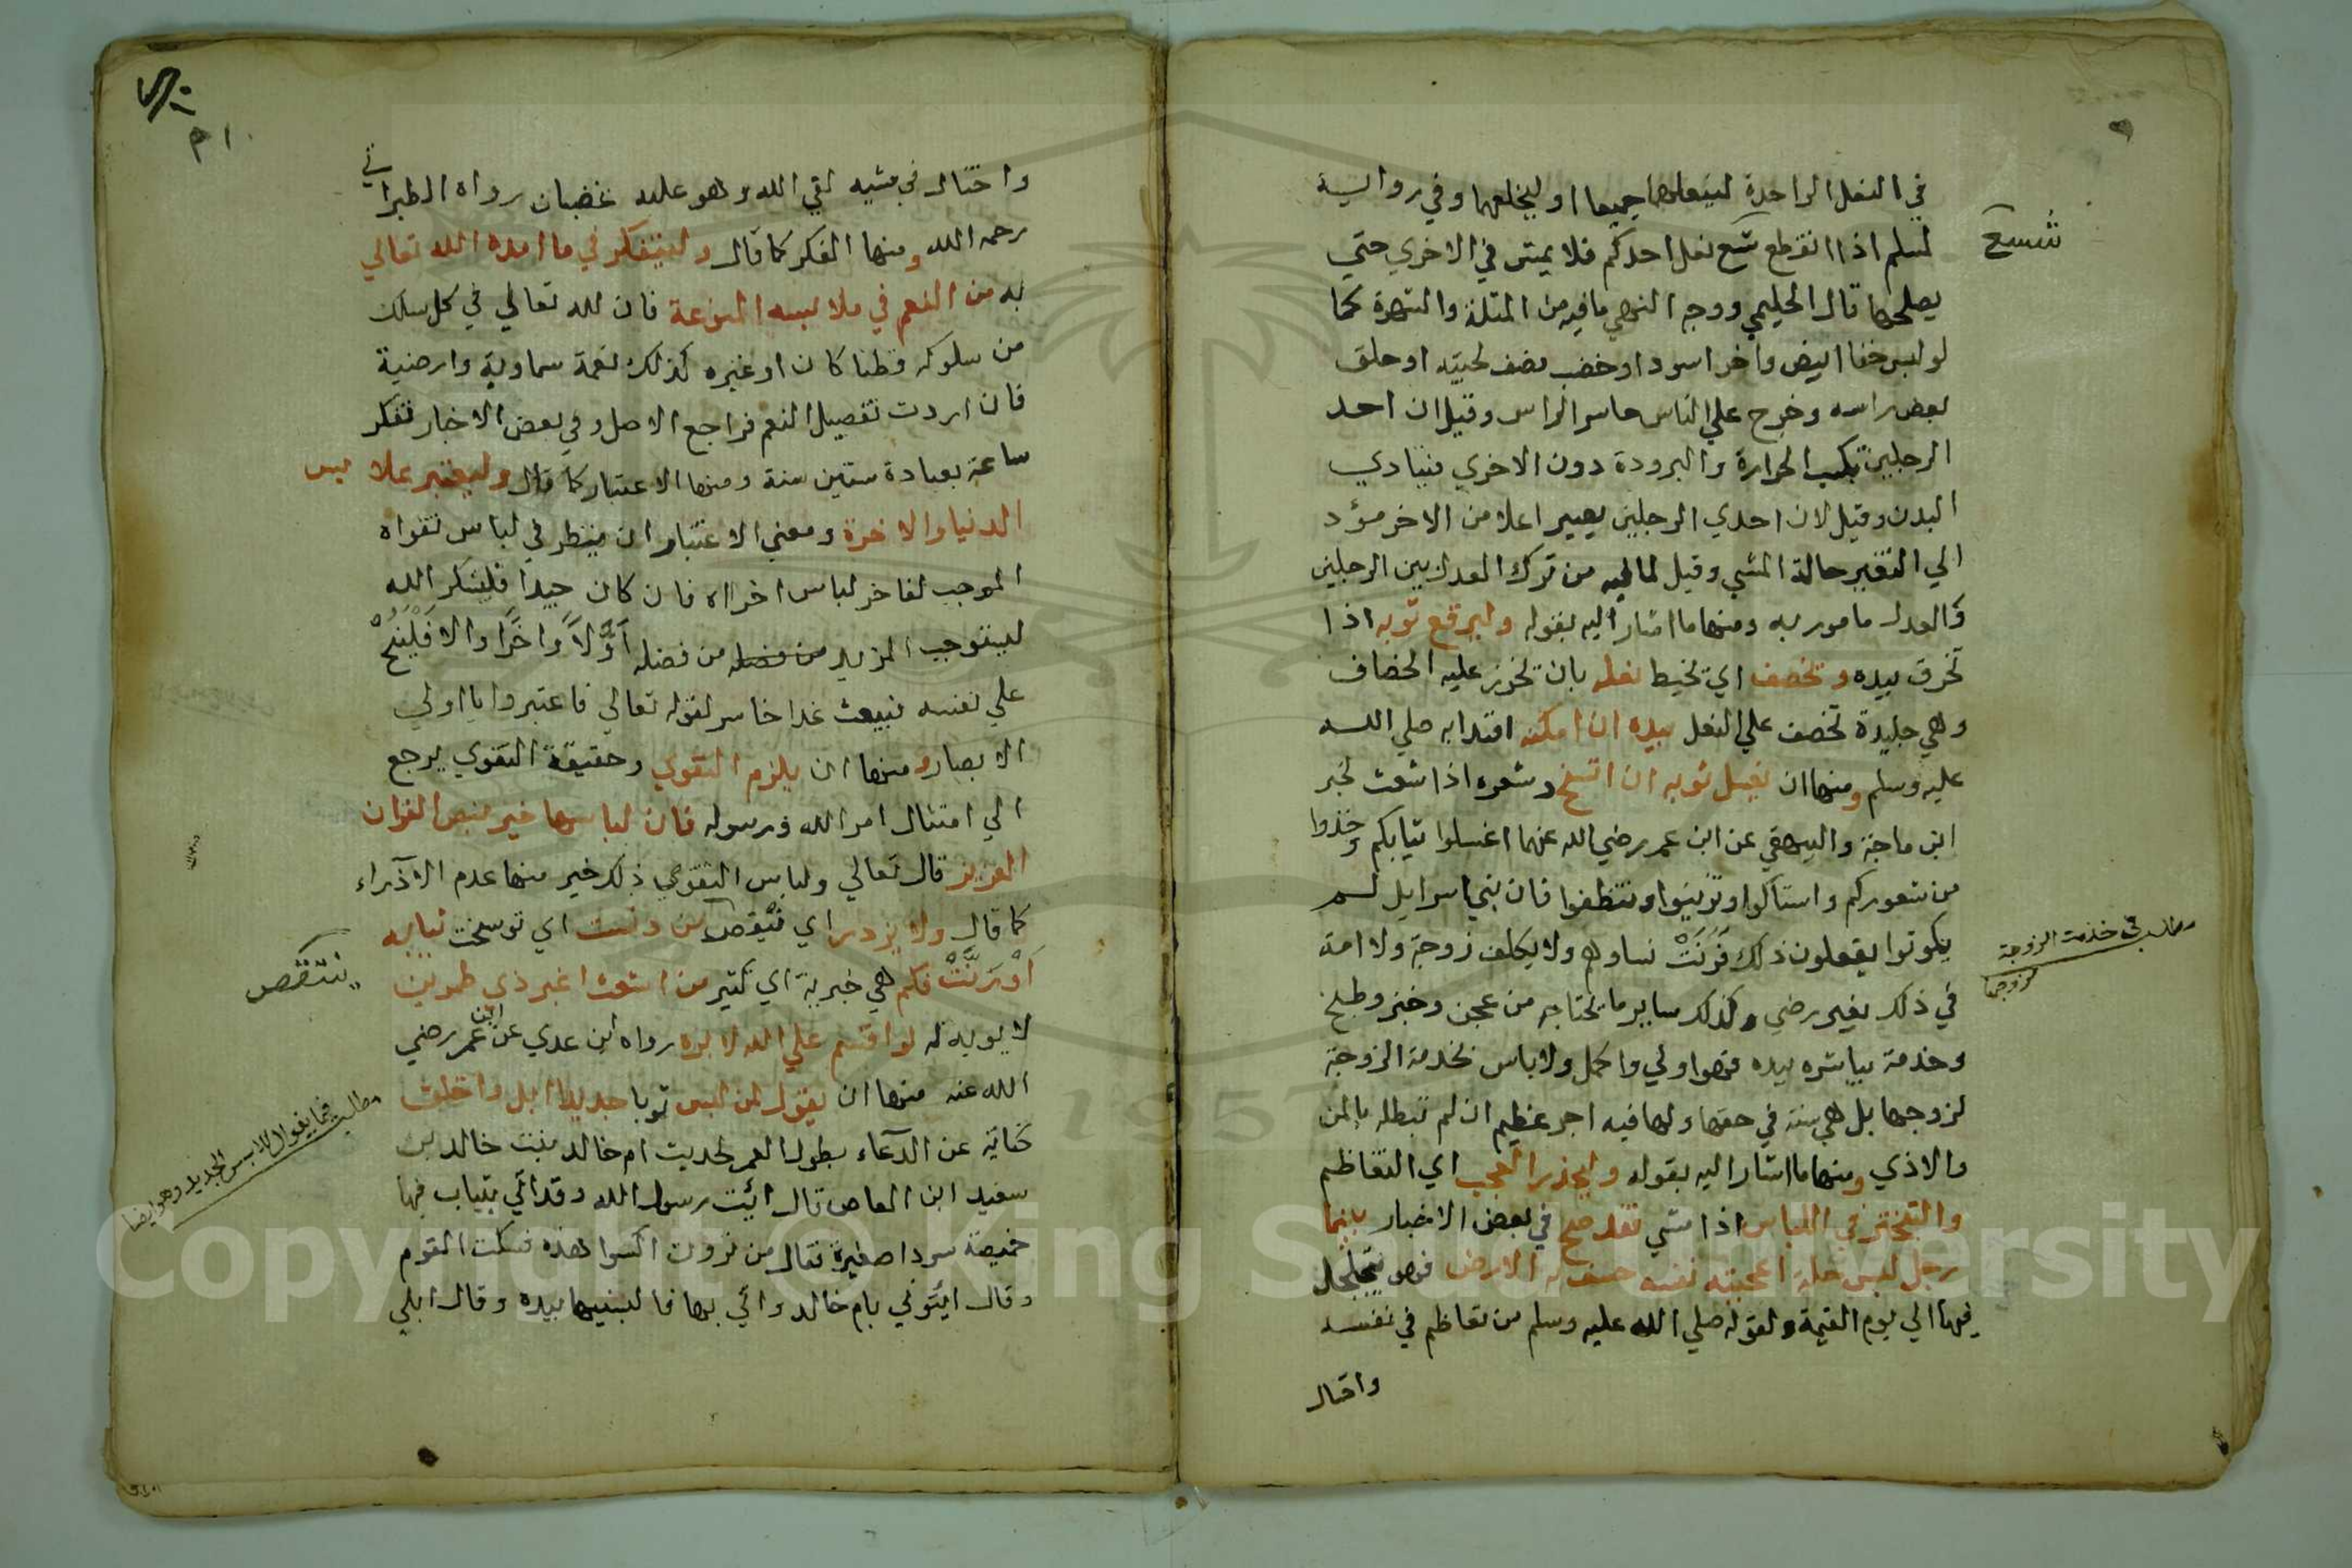 في النعل الواحدة لينعلهما جميعا او ليخلعهما وفي رواية
شسع
لمسلم اذا انقطع شسع نعل احدكم فلا يمش في الاخري حتي
يصلحها قال الحليمي ووجه النهي ما فيه من المثلة والشهرة كما
لو لبس خفا ابيض واخر اسود او خضب نصف لحيته او حلق
بعض راسه وخرج علي الناس حاسر الراس وقيل ان احد
الرجلين تكسب الحرارة والبرودة دون الاخري فيتادي
البدن وقيل لان احدي الرجلين يصير اعلا من الاخر مؤد
الي التغير حالة المشي وقيل لما فيه من ترك العدل بين الرجلين
والعدل مامور به ومنها ما اشار اليه بقوله وليرقع ثوبه اذا
تخرق بيده وتخصف اي تخيط نعله بان تخرز عليه الخصاف
وهي جليدة تخصف علي النعل بيده ان امكنه اقتدا به صلي الله
عليه وسلم ومنها ان يغسل ثوبه ان اتسخ وشعره اذا شعث لخبر
ابن ماجة والبيهقي عن ابن عمر رضي الله عنهما اغسلوا ثيابكم وخذوا
من شعوركم واستاكوا وتزينوا وتنظفوا فان بني اسرايل لم
يكونوا يفعلون ذلك فزنت نساوهم ولا يكلف زوجة ولا امة
مطلب في خدمت الزوجة
لزوجها
في ذلك بغير رضي وكذلك ساير ما يحتاجه من عجن وخبز وطبخ
وخدمة يباشره بيده فهو اولي واكمل ولا باس بخدمة الزوجة
لزوجها بل هي سنة في حقها ولها فيه اجر عظيم ان لم تبطله بالمن
والاذي ومنها ما اشار اليه بقوله وليحذر العجب اي التعاظم
والتبختر في اللباس اذا مشي فقد صح في بعض الاخبار بينما
رجل لبس حلة اعجبته نفسه خسف به الارض فهو يتجلجل
فيها الي يوم القيمة ولقوله صلي الله عليه وسلم من تعاظم في نفسه
واختال
واختال في مشيه لقي الله وهو عليه غضبان رواه الطبراني
رحمه الله ومنها الفكر كما قال وليتفكر في ما امده الله تعالي
به من النعم في ملابسه المنوعة فان لله تعالي في كل سلك
من سلوكه قطنا كان او غيره كذلك نعمة سماوية وارضية
فان اردت تفصيل النعم فراجع الاصل وفي بعض الاخبار تفكر
ساعة بعبادة ستين سنة ومنها الاعتبار كما قال وليعتبر بملابس
الدنيا والاخرة ومعني الاعتبار ان ينظر في لباس تقواه
الموجب لفاخر لباس اخراه فان كان جيدا فليشكر الله
ليستوجب المزيد من فضله من فضله اولا واخرا والا فلينح
علي نفسه فيبعث غدا خاسر لقوله تعالي فاعتبروا يا اولي
الابصار ومنها ان يلزم التقوي وحقيقة التقوي يرجع
الي امتثال امر الله ورسوله فان لباسها خير بنص القران
العزيز قال تعالي ولباس التقوي ذلك خير منها عدم الازدراء
كما قال ولا يزدر اي ينتقص من دنست اي توسخت ثيابه
ينتقص
او رثت فكم هي خبرية اي كثير من اشعث اغبر ذي طمرين
لا يوبه له لو اقسم علي الله لابره رواه ابن عدي عن ابن عمر رضي
الله عنه منها ان يقول لمن لبس ثوبا جديدا ابل واخلق
مطلب فيما يقوال لابس الجديد وهو ايضا
كناية عن الدعاء بطول العمر لحديث ام خالد بنت خالد بن
سعيد ابن العاص قال ائيت رسول الله وقد اتي بثياب فيها
خميصة سودا صغيرة فقال من ترون اكسوا هذه فسكت القوم
وقال ايتوني بام خالد واتي بها فالبسنيها بيده وقال ابلي
Copyright © King Saud University
1957